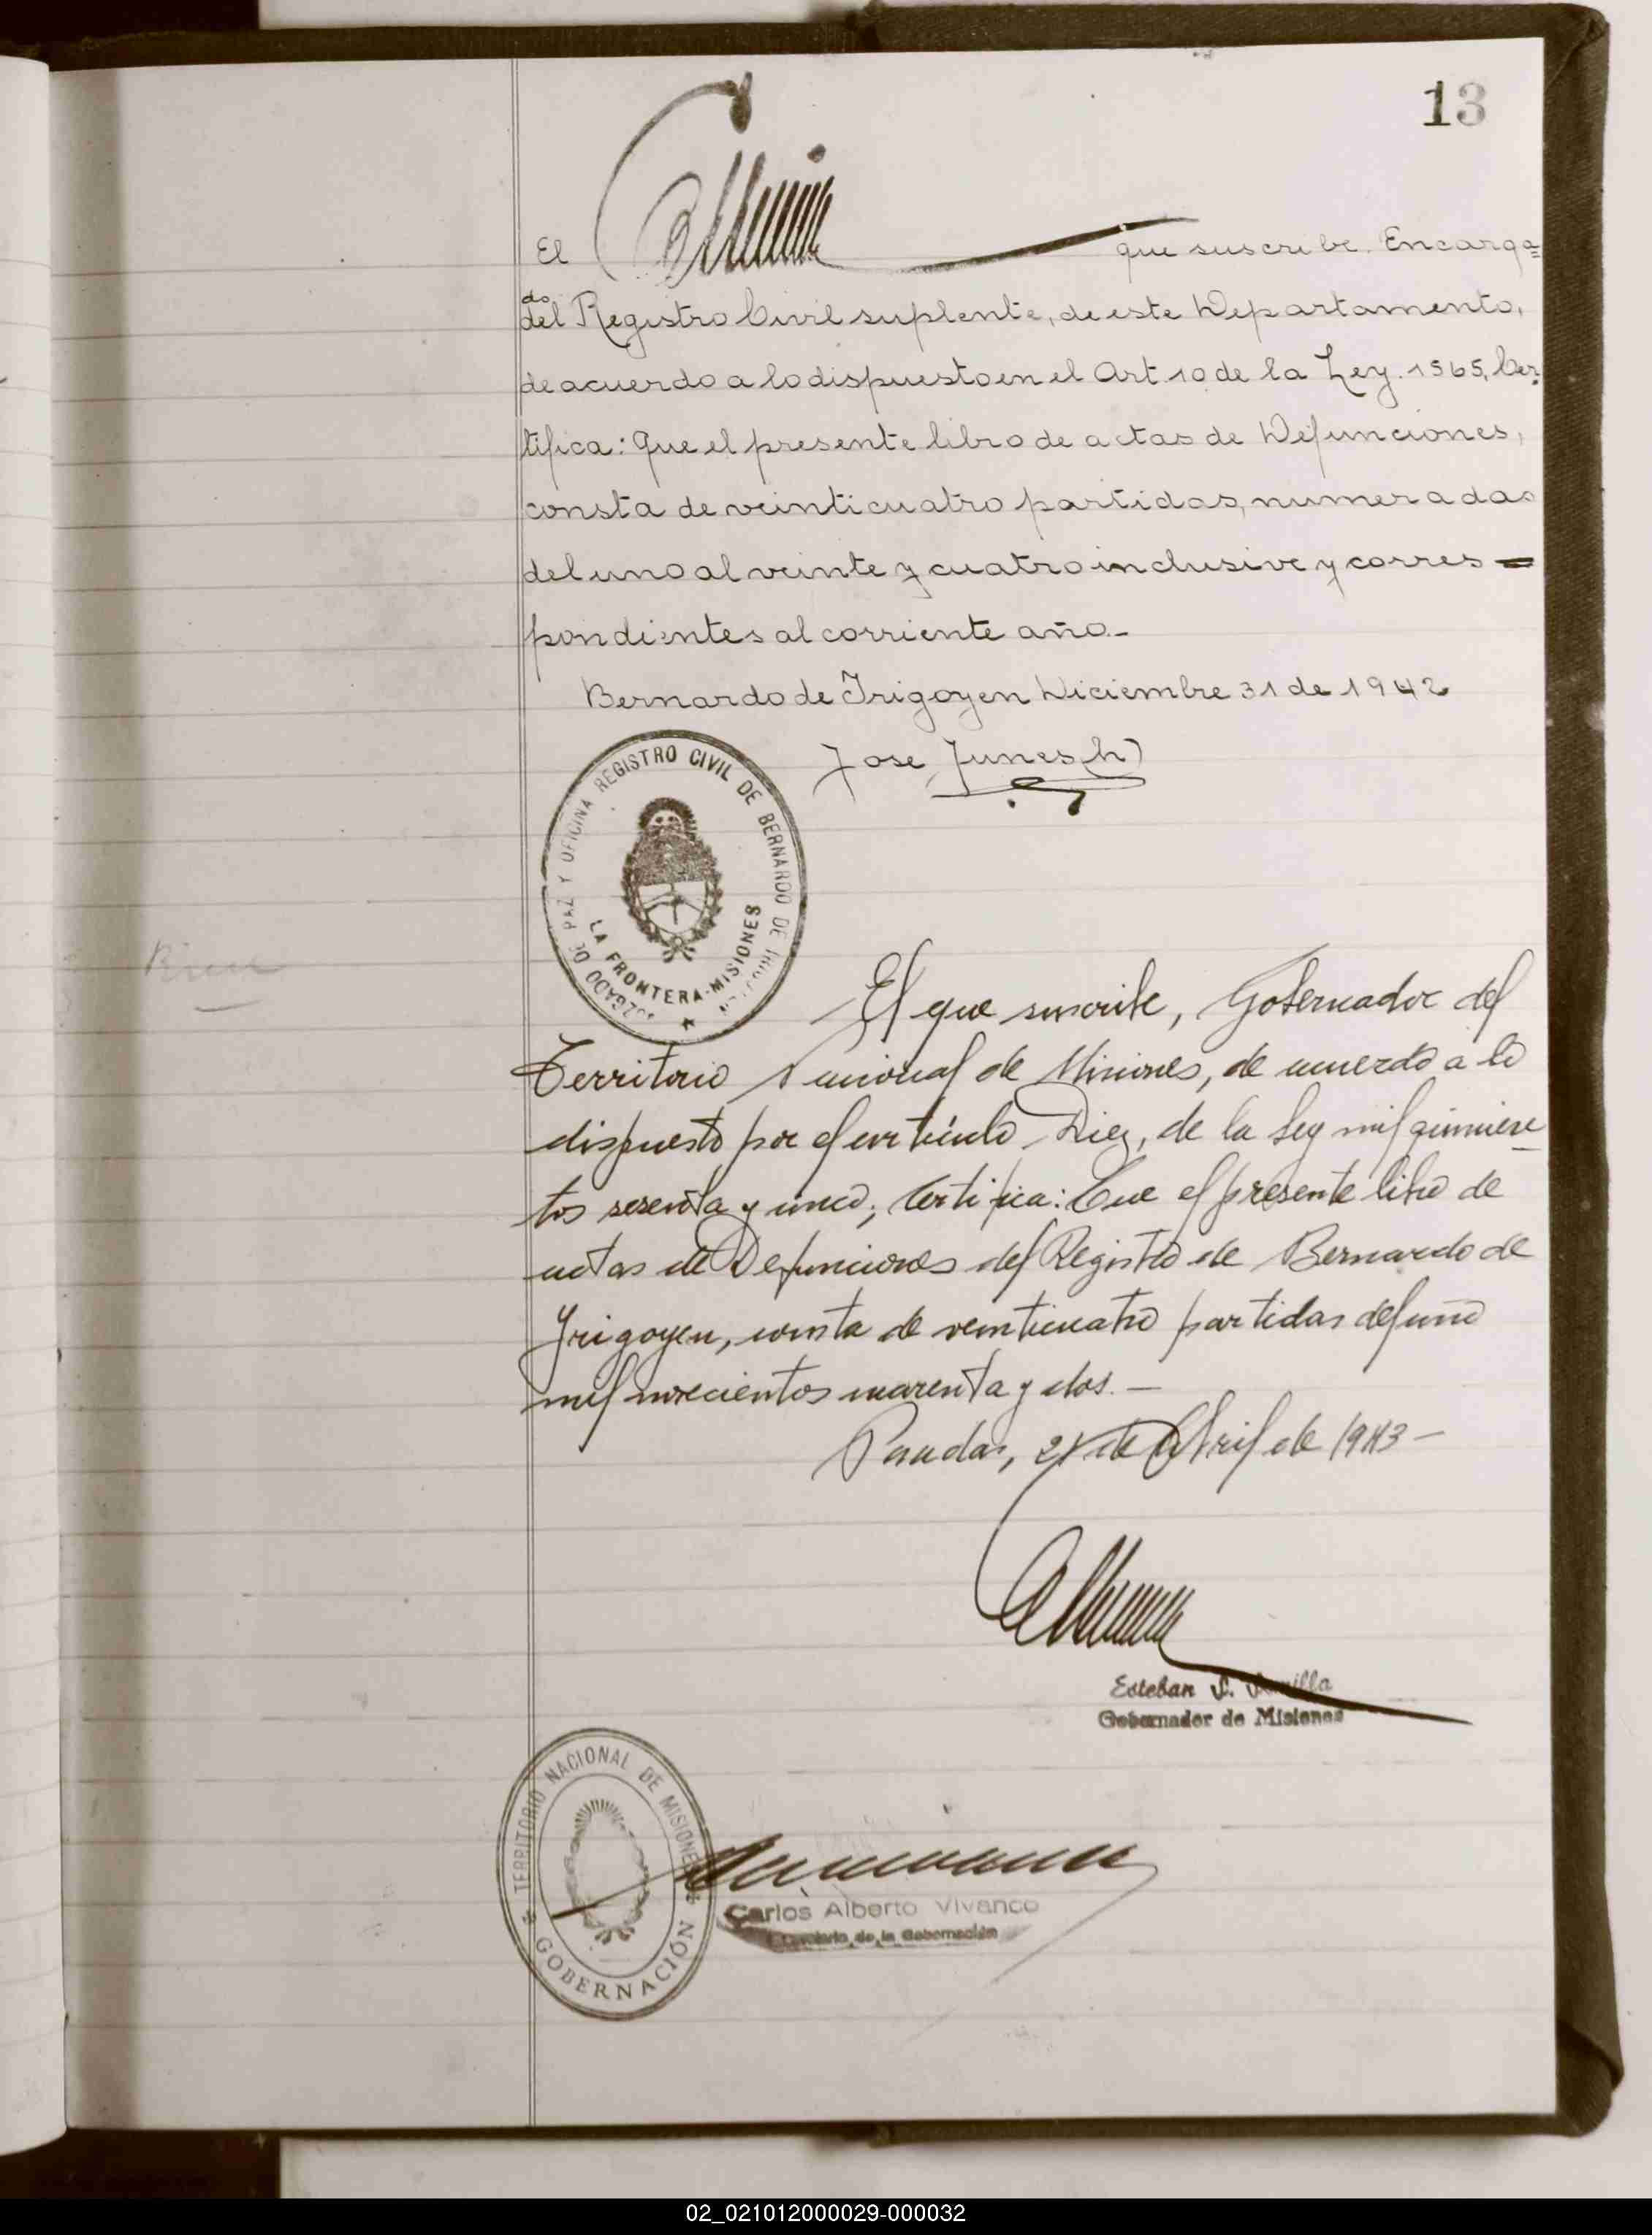 13
El que suscribe. Encarga=
do
del Registro Civil suplente, de este Departamento,
de acuerdo a lo dispuesto en el Art 10 de la Ley. 1565, Cer=
tifica: Que el presente libro de actas de Defunciones,
consta de veinticuatro partidas, numeradas
del uno al veinte y cuatro inclusive y corres=
pondientes al corriente año.-
Bernardo de Irigoyen Diciembre 31 de 1942
Jose Junes (h)
JUZGADO DE PAZ Y OFICINA REGISTRO CIVIL DE BERNARDO DE IRIGOYEN
LA FRONTERA-MISIONES
El que suscribe, Gobernador del
Territorio Nacional de Misiones, de acuerdo a lo
dispuesto por el artículo Diez, de la Ley mil quinien-
tos sesenta y cinco; Certifica: Que el presente libro de
actas de Defunciones del Registro de Bernardo de
Yrigoyen, consta de veinticuatro partidas del año
mil novecientos cuarenta y dos.-
Posadas, de Abril de 1943-
Esteban
Gobernador de Misiones
TERRITORIO NACIONAL DE MISIONES
GOBERNACIÓN
Carlos Alberto Vivanco
Secretario de la Gobernación
02_021012000029-000032